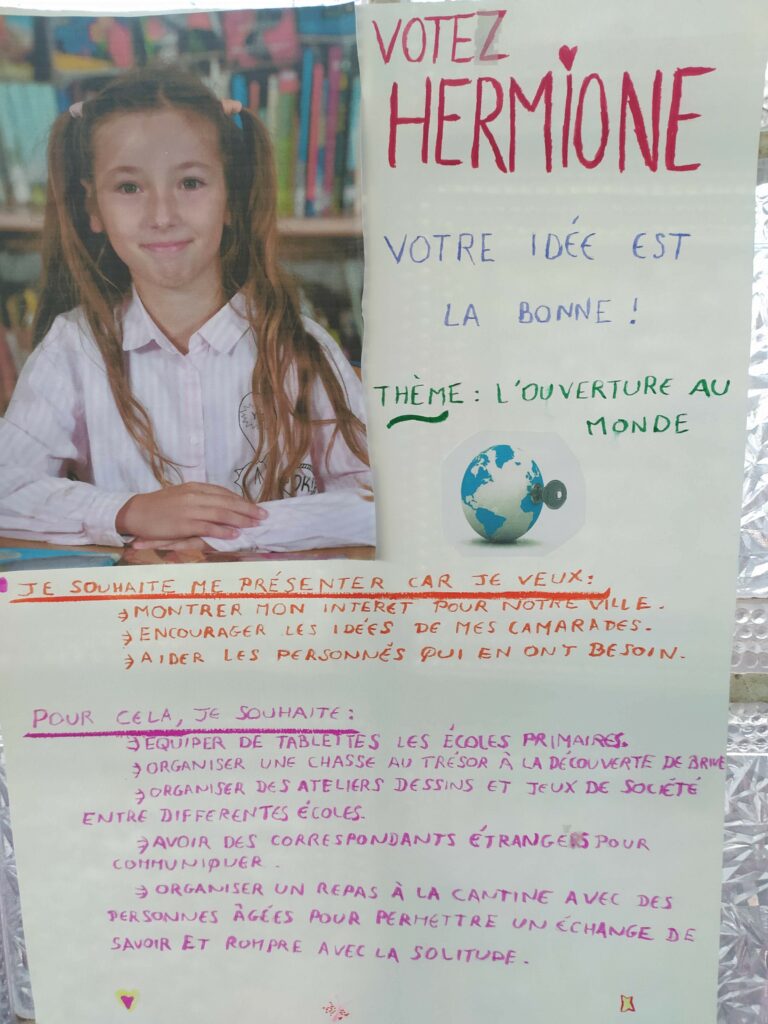 VOTEZ
HERMIONE
VOTRE IDÉE EST
LA BONNE !
THÈME : L'OUVERTURE AU
MONDE
JE SOUHAITE ME PRÉSENTER CAR JE VEUX :
→ MONTRER MON INTERET POUR NOTRE VILLE.
→ ENCOURAGER LES IDÉES DE MES CAMARADES.
→ AIDER LES PERSONNÉS QUI EN ONT BESOIN.
POUR CELA, JE SOUHAITE :
→ EQUIPER DE TABLETTES LES ÉCOLES PRIMAIRES.
→ ORGANISER UNE CHASSE AU TRÉSOR À LA DÉCOUVERTE DE BRIVE
→ ORGANISER DES ATELIERS DESSINS ET JEUX DE SOCIÉTÉ
ENTRE DIFFERENTES ÉCOLES.
→ AVOIR DES CORRESPONDANTS ÉTRANGERS POUR
COMMUNIQUER.
→ ORGANISER UN REPAS À LA CANTINE AVEC DES
PERSONNES ÂGÉES POUR PERMETTRE UN ÉCHANGE DE
SAVOIR ET ROMPRE AVEC LA SOLITUDE.